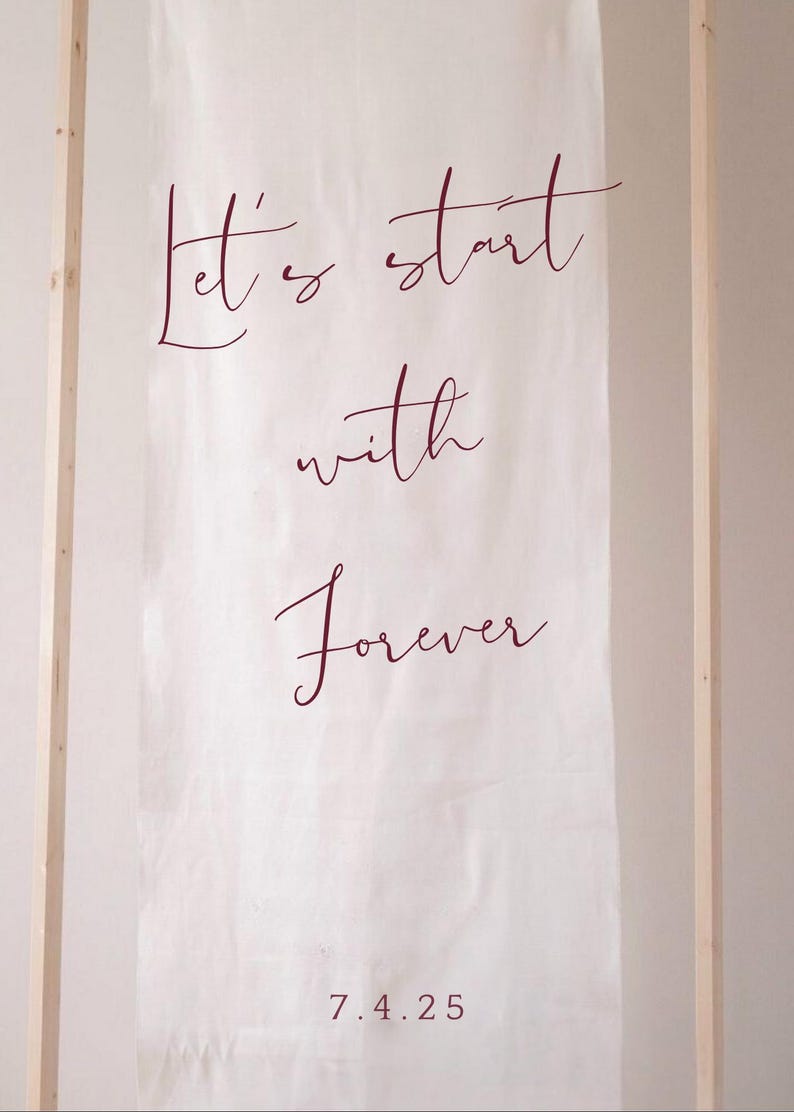 Let's start
with
Forever
7.4.25